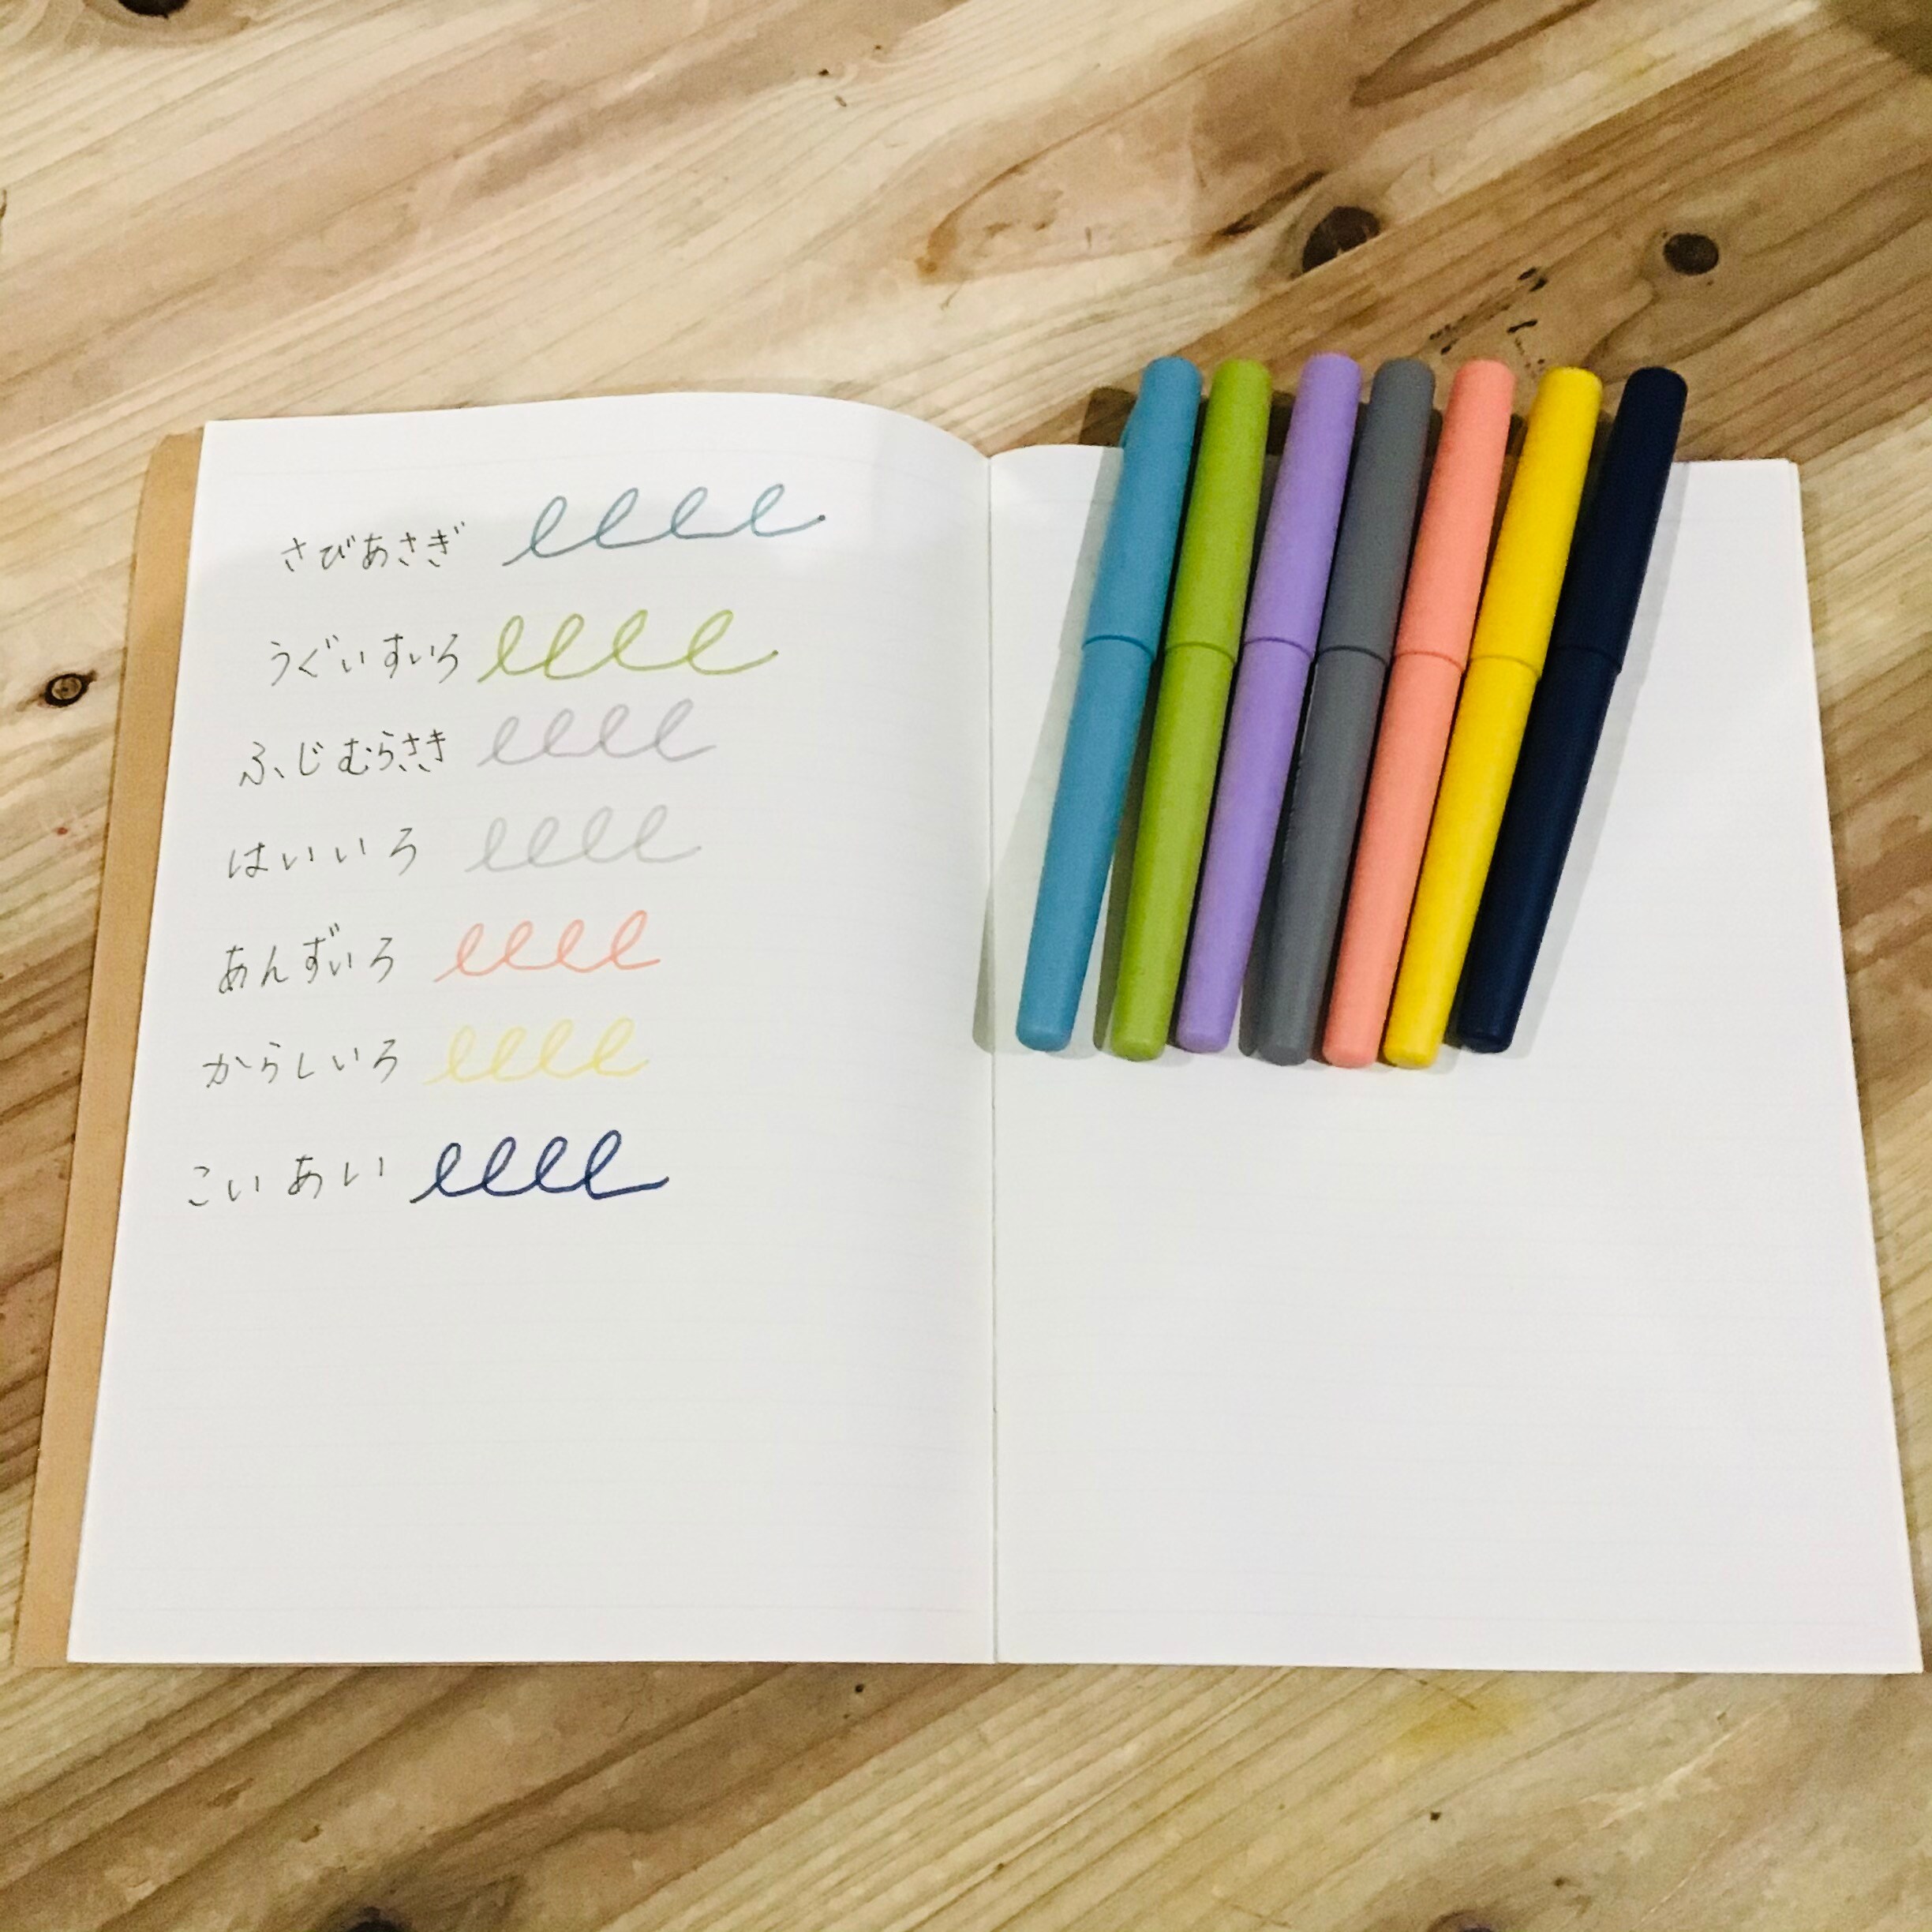 さびあさぎ
うぐいすいろ
ふじむらさき
はいいろ
あんずいろ
からしいろ
こいあい